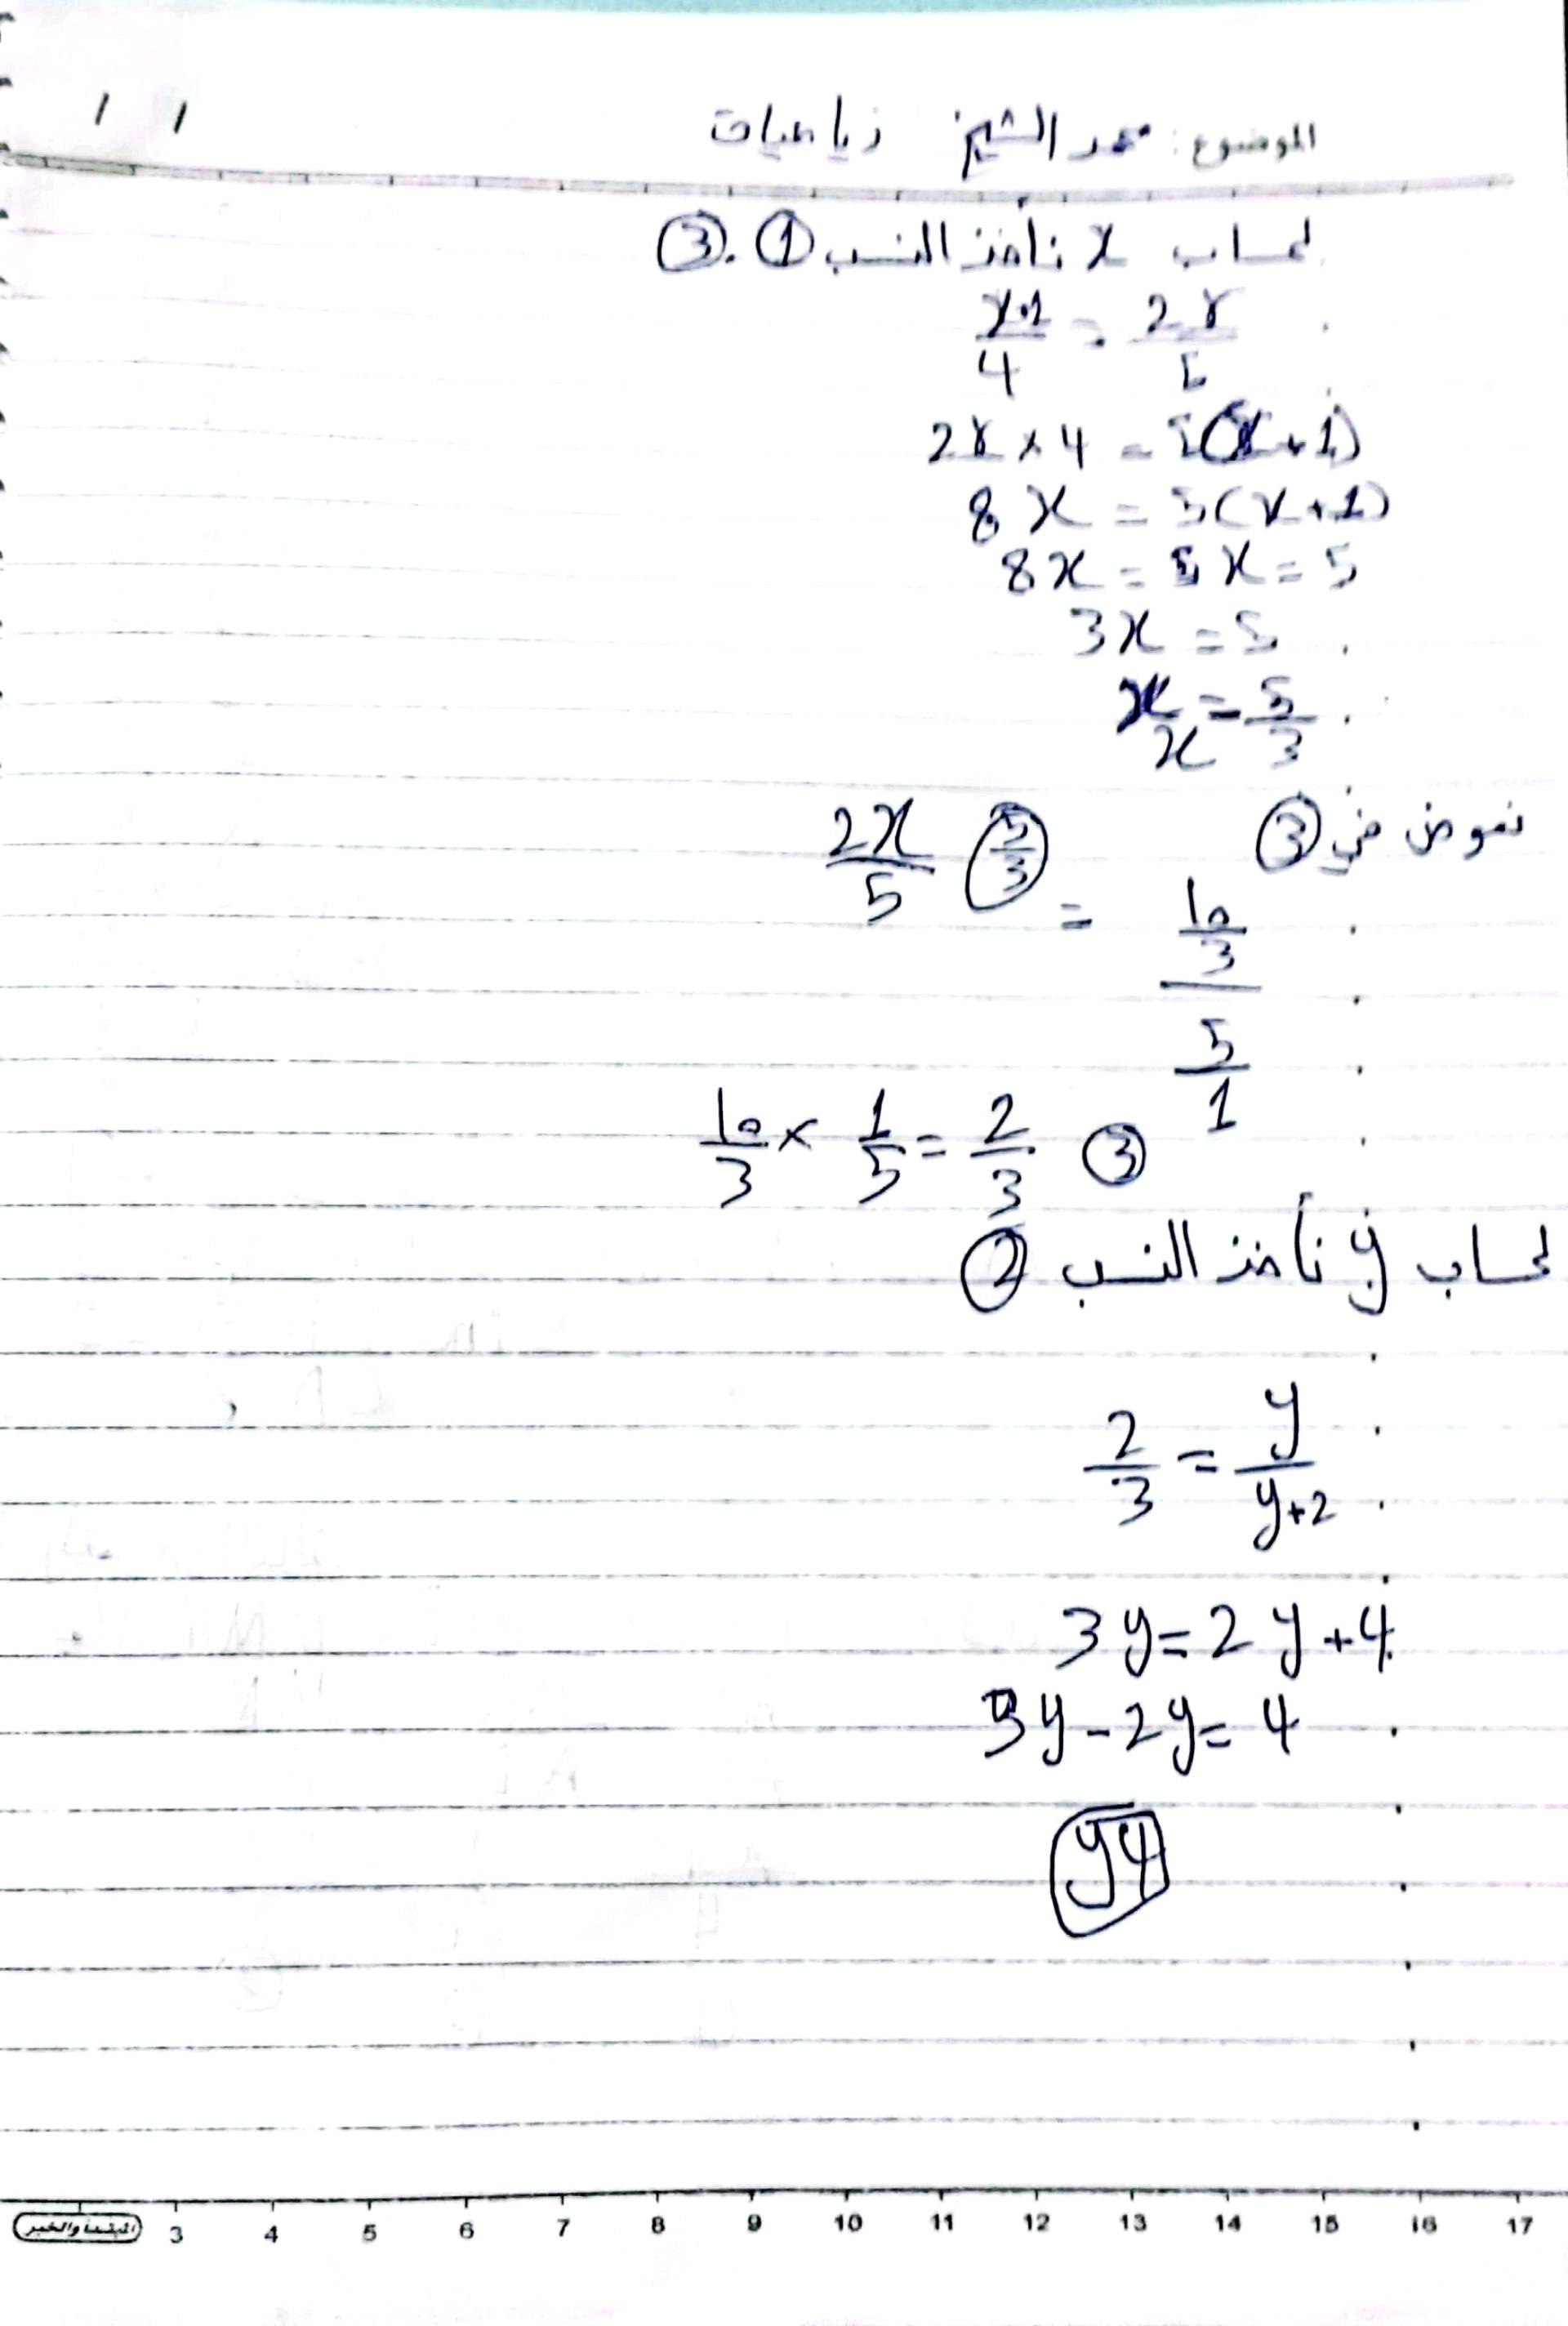 الموضوع: محمد الشيخ رياضيات
/ /
لحساب x نأخذ النسب ① . ③
x+1/4 = 2x/5
2x × 4 = 5(x+1)
8x = 5(x+1)
8x = 5x = 5
3x = 5
x/x = 5/3
نعوض في ③
2x/5 (5/3) = 10/3 / 5/1
10/3 × 1/5 = 2/3 ③
لحساب y نأخذ النسب ②
2/3 = y/y+2
3y = 2y + 4
3y - 2y = 4
y4
المبتدأ والخبر 3 4 5 6 7 8 9 10 11 12 13 14 15 16 17